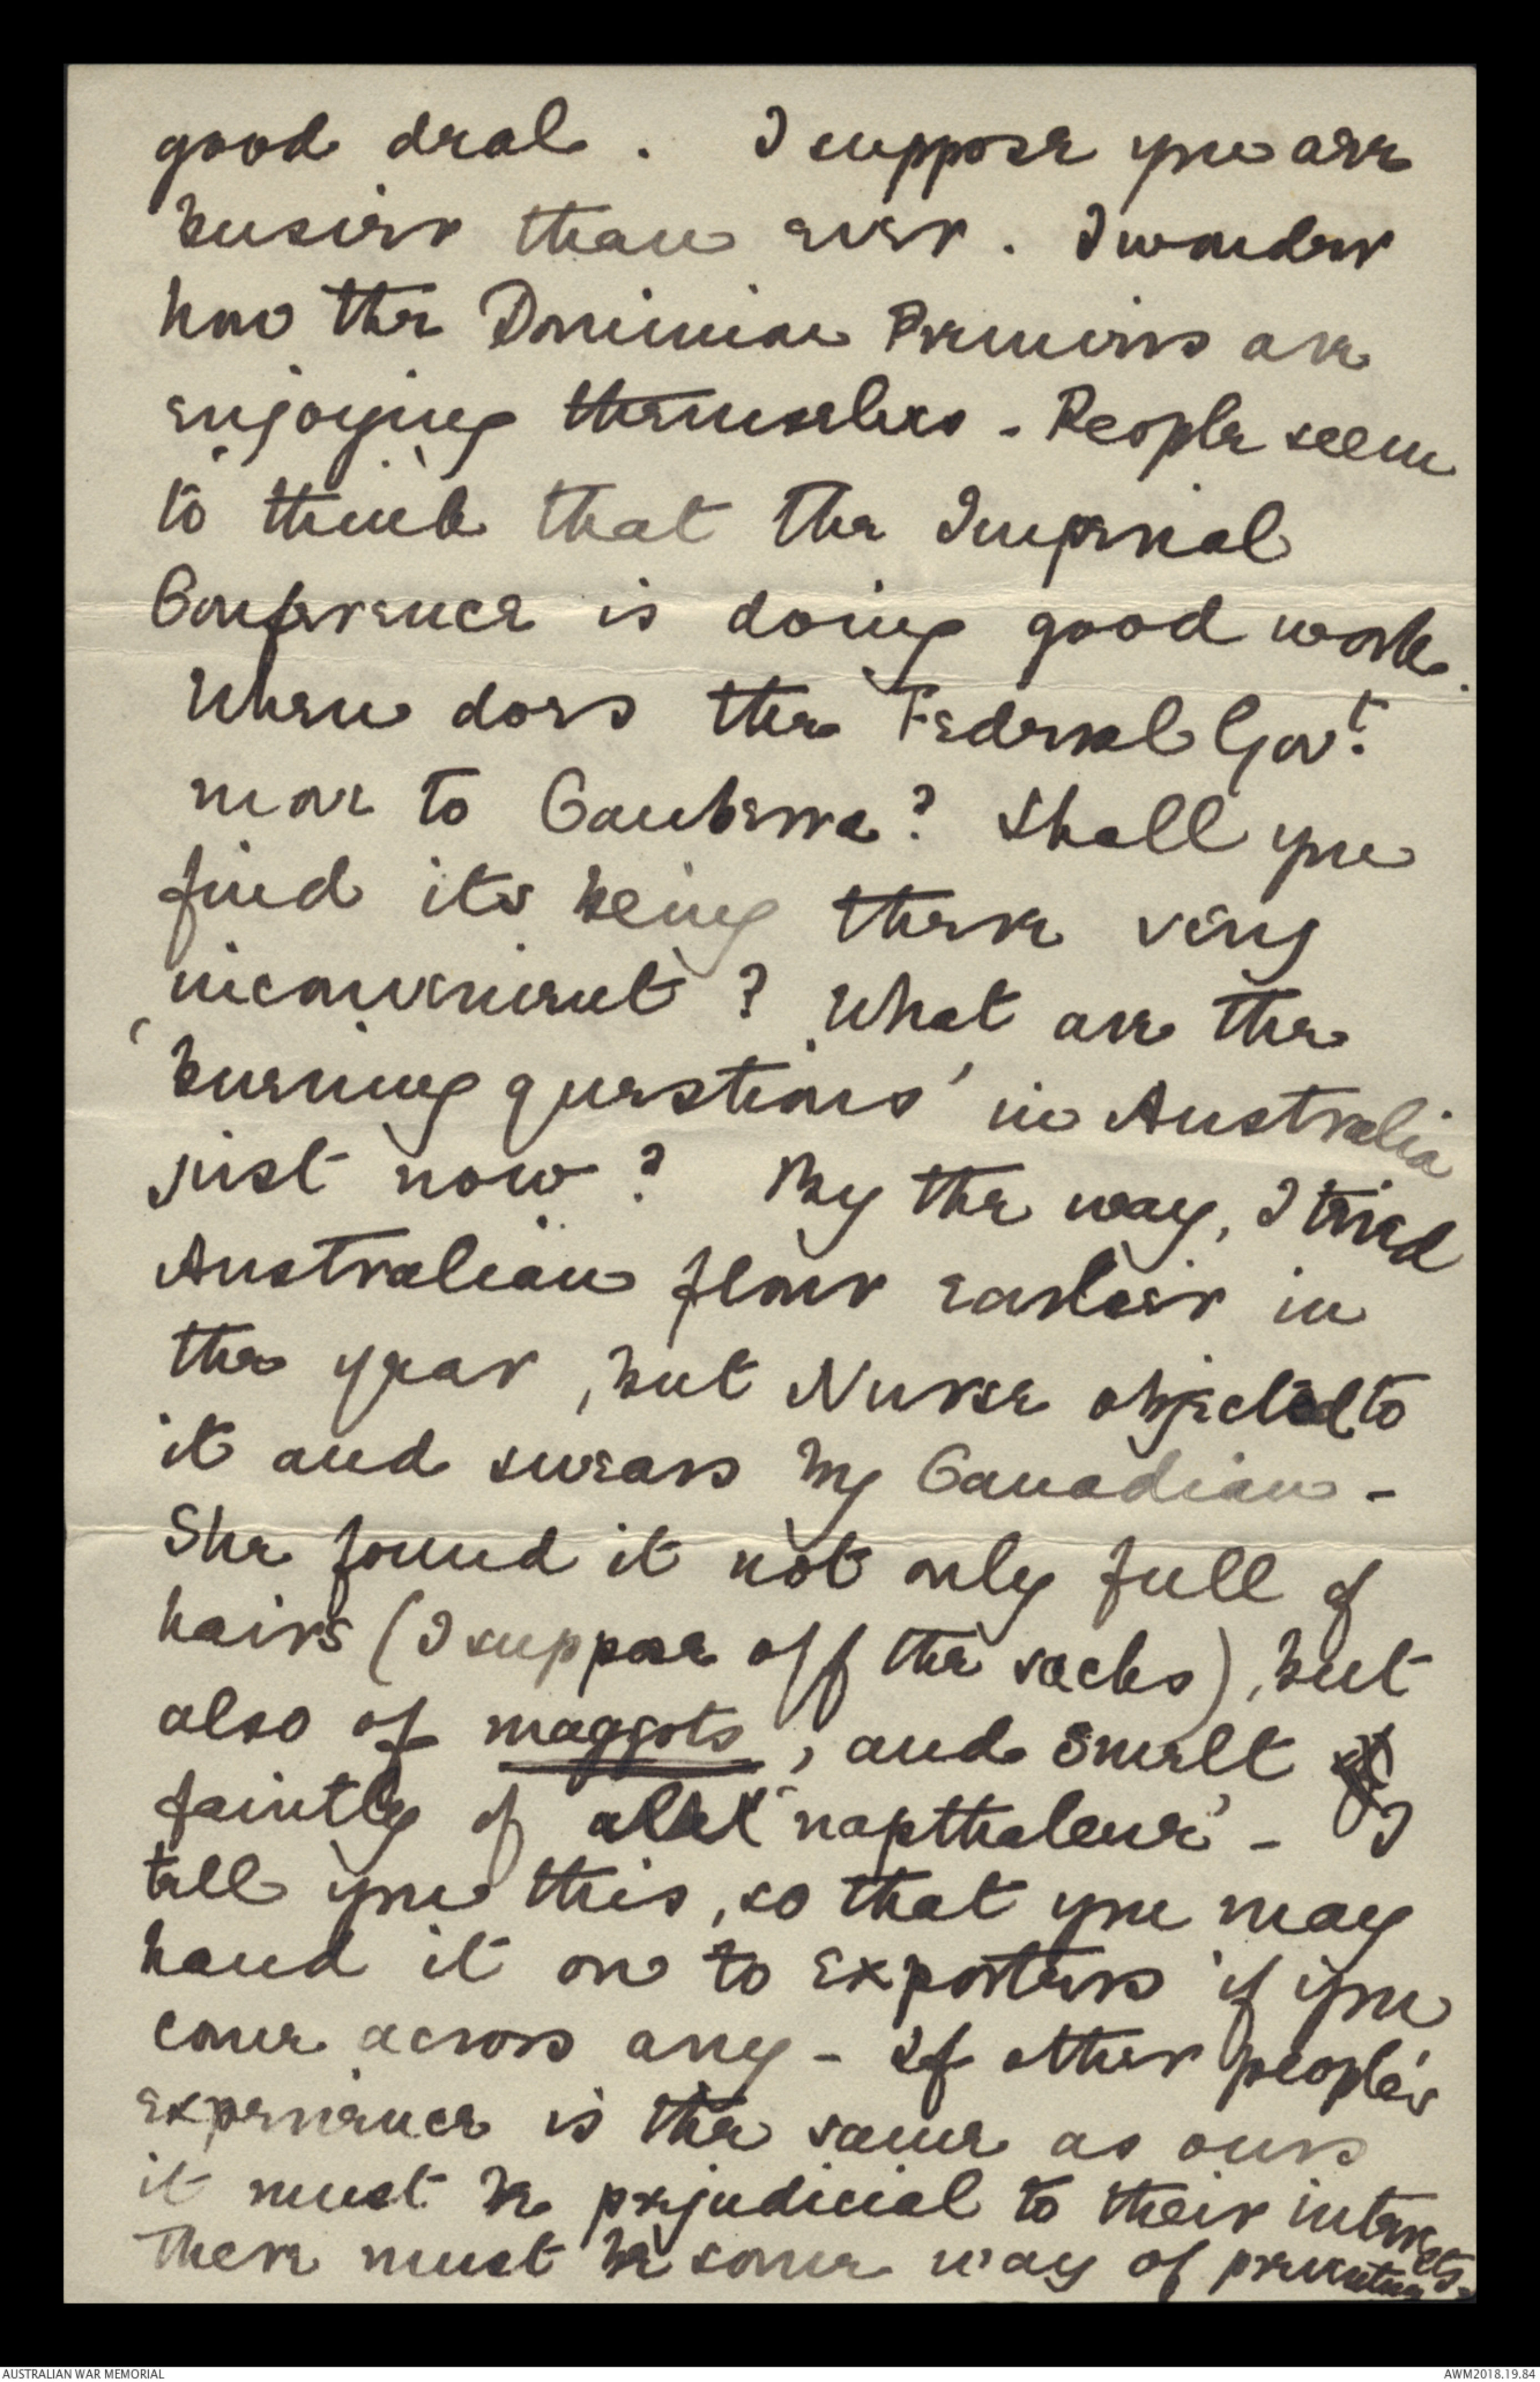 good deal. I suppose you are
busier than ever. I wonder
how the Dominion Premiers are
enjoying themselves - People seem
to think that the Imperial
Conference is doing good work.
When does the Federal Govt.
move to Canberra? Shall you
find its being there very
inconvenient? What are the
'burning questions' in Australia
just now? By the way, I tried
Australian flour earlier in
the year, but Nurse objected to
it and swears by Canadian -
She found it not only full of
hairs (I suppose off the sacks), but
also of maggots, and smelt
faintly of 'napthalene' - I
tell you this, so that you may
hand it on to exporters if you
come across any - If other people's
experience is the same as ours
it must be prejudicial to their interests.
There must be some way of preventing
AUSTRALIAN WAR MEMORIAL
AWM2018.19.84